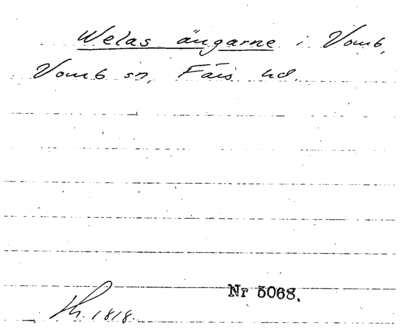 Welas ängarne i Vomb,
Vomb sn, Färs hd.
Nr 5068.
1818.